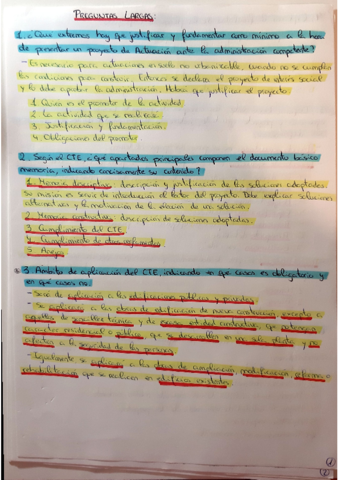 PREGUNTAS LARGAS:
1. ¿Qué extremos hay que justificar y fundamentar como mínimo a la hora
de presentar un proyecto de Actuación ante la administración competente?
- Es necesario para actuaciones en suelo no urbanizable, cuando no se cumplen
las condiciones para construir. Entonces se declara el proyecto de interés social
y lo debe aprobar la administración. Habrá que justificar el proyecto
1. Quien es el promotor de la actividad
2. La actividad que se realizará
3. Justificación y fundamentación.
4. Obligaciones del promotor
2. Según el CTE, ¿qué apartados principales componen el documento básico
memoria, indicando concisamente su contenido?
1. Memoria descriptiva: descripción y justificación de las soluciones adoptadas.
Su misión es servir de introducción al lector del proyecto. Debe explicar soluciones
alternativas y la motivación de la elección de un solución.
2. Memoria constructiva: descripción de soluciones adoptadas.
3. Cumplimiento del CTE
4. Cumplimiento de otros reglamentos
5. Anejos
3. Ámbito de aplicación del CTE, indicando en qué casos es obligatoria y
en qué casos no.
- Será de aplicación a las edificaciones públicas y privadas.
- Se aplicará a las obras de edificación de nueva construcción excepto a
aquellas de sencillez técnica y de escasa entidad constructiva, que no tengan
carácter residencial o público, que se desarrollen en una sola planta y no
afecten a la seguridad de las personas.
- Igualmente se aplicará a las obras de ampliación, modificación, reforma o
rehabilitación que se realicen en edificios existentes.